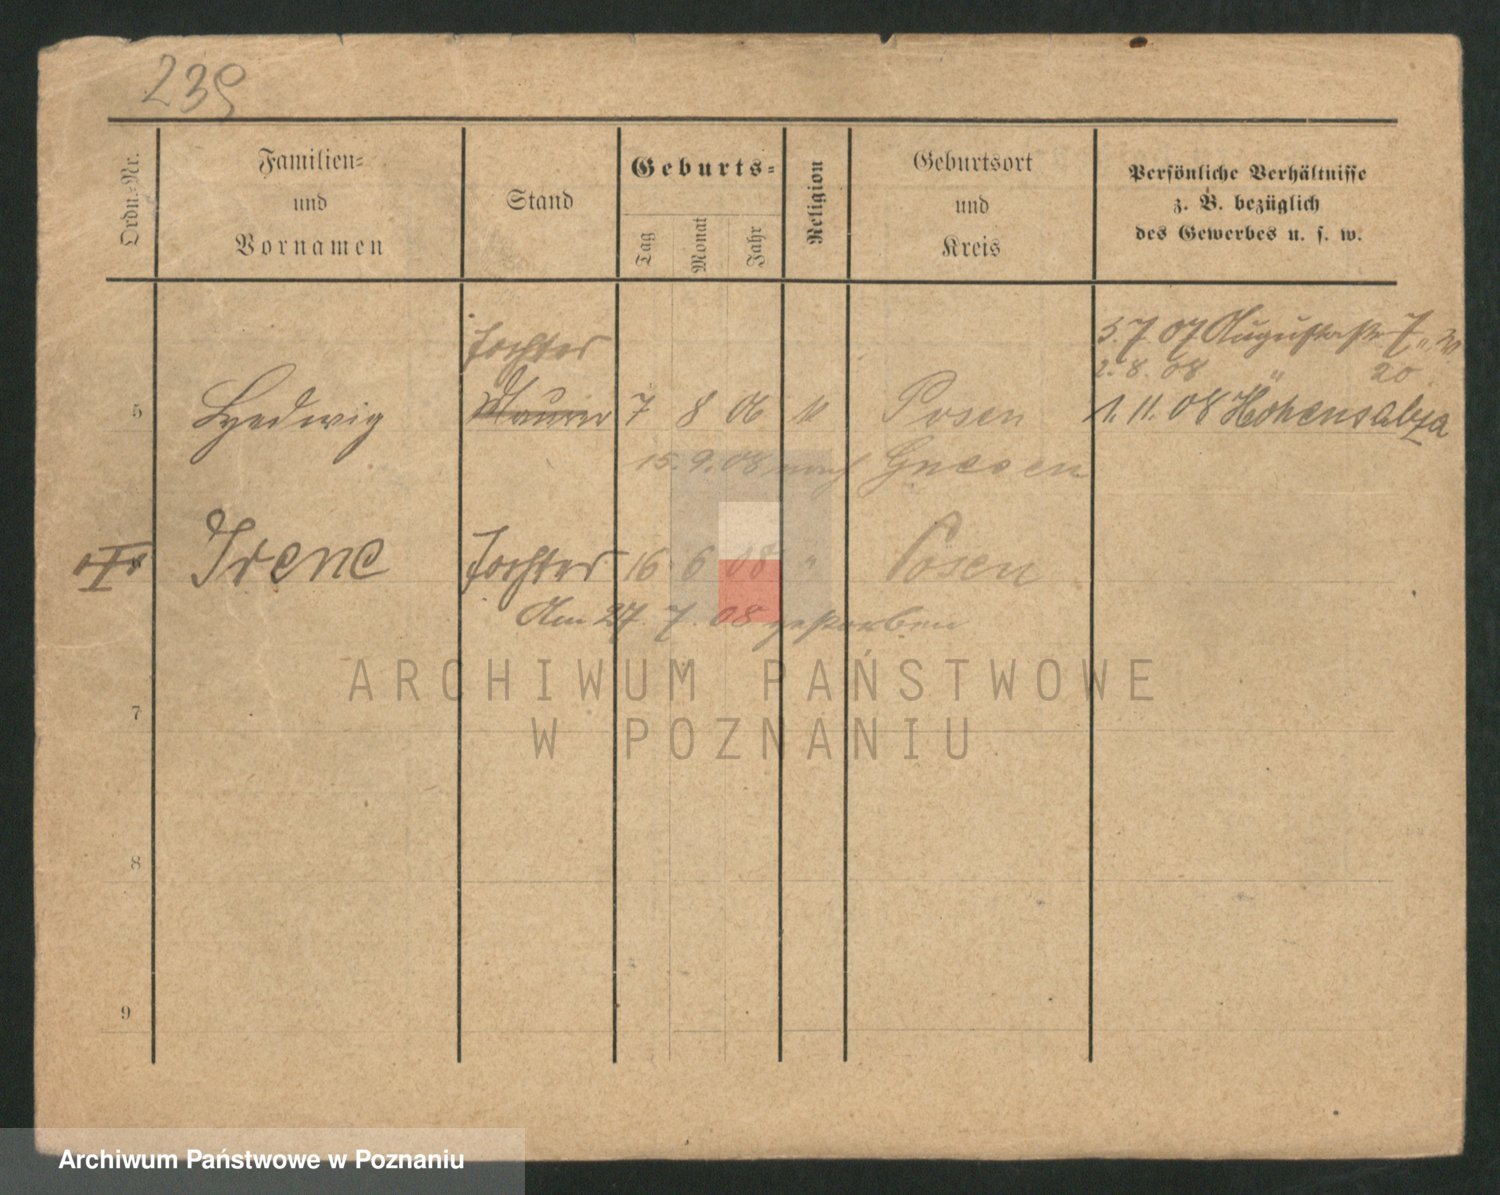 239
Ordn.-Nr.
Familien-
und
Vornamen
Stand
Geburts-
Tag
Monat
Jahr
Religion
Geburtsort
und
Kreis
Persönliche Verhältnisse
z. B. bezüglich
des Gewerbes u. s. w.
Tochter
5.7.07 Augustastr 7
2.8.08 " 20
5 Hedwig 7 8 06 " Posen 1.11.08 Hohensalza
15.9.08 nach Gnesen
Irene Tochter 16 6 08 " Posen
Am 27.7.08 gestorben
ARCHIWUM PAŃSTWOWE
W POZNANIU
7
8
9
Archiwum Państwowe w Poznaniu